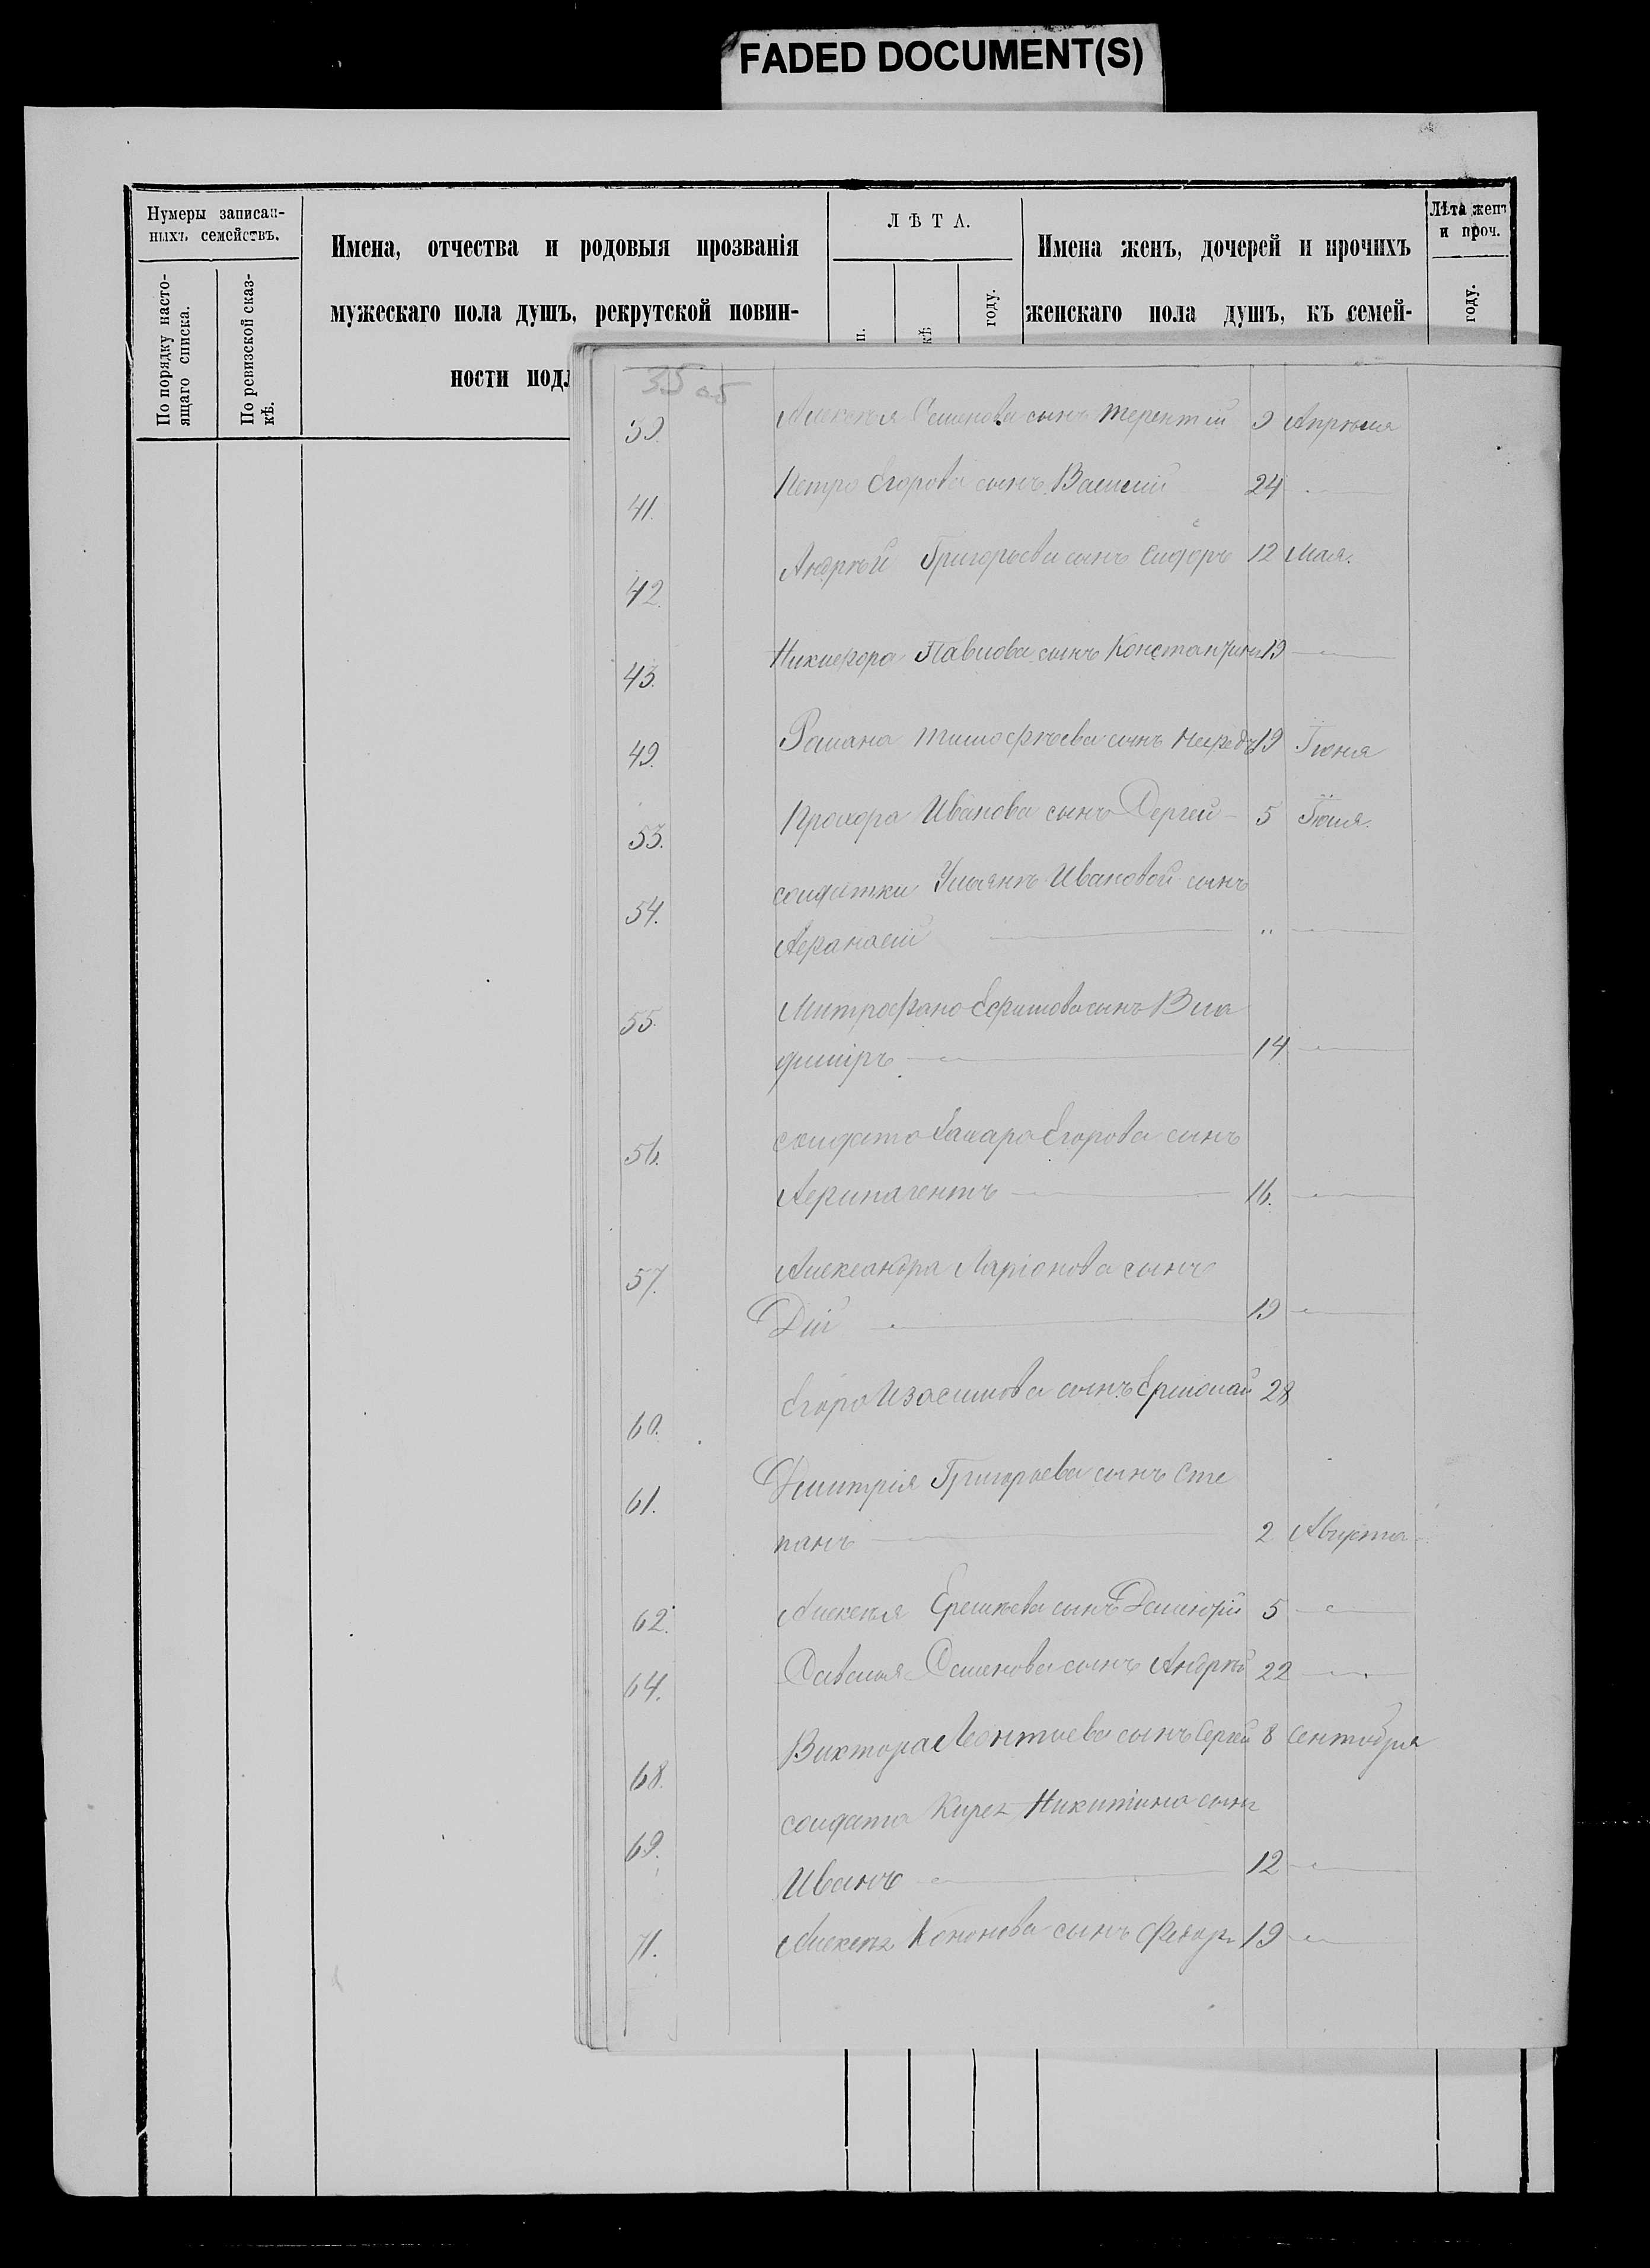 FADED DOCUMENT(S)
Нумеры записан-
ныхъ семействъ.
По порядку насто-
ящаго списка.
По ревизской сказ-
кѣ.
Имена, отчества и родовыя прозванія
мужескаго пола душъ, рекрутской повин-
ности подл
ЛѢТА.
п.
кѣ
году.
Имена женъ, дочерей и прочихъ
женскаго пола душъ, къ семей-
Лѣта женъ
и проч.
году.
35 об
39. Алексѣя Семенова сынъ Терентій 9 Апрѣля
41. Петра Егорова сынъ Василій 24 "
42. Андрѣй Григорьева сынъ Сидоръ 12 Мая.
43. Никифора Павлова сынъ Константинъ 19 "
49. Романа Тимофѣева сынъ 19 Іюня
53. Прохора Иванова сынъ Сергей 5 Іюля.
54. солдатки Ульянѣ Ивановой сынъ
Афанасій " "
55. Митрофана Ефимова сынъ Вла
диміръ 14 "
56. солдата Захара Егорова сынъ
16. "
57. Александра Ларіонова сынъ
Дій 19 "
60. Егора Изосимова сынъ Ермолай 28
61. Дмитрія Григорьева сынъ Сте
панъ 2 Августа
62. Алексѣя Еремѣева сынъ Дмитрій 5 "
64. Савелья Семенова сынъ Андрѣй 22 "
68. Виктора Леонтьева сынъ Сергѣй 8 Сентября
69. солдата Никитина сынъ
Иванъ 12 "
71. Алексѣя Кононова сынъ Федоръ 19 "